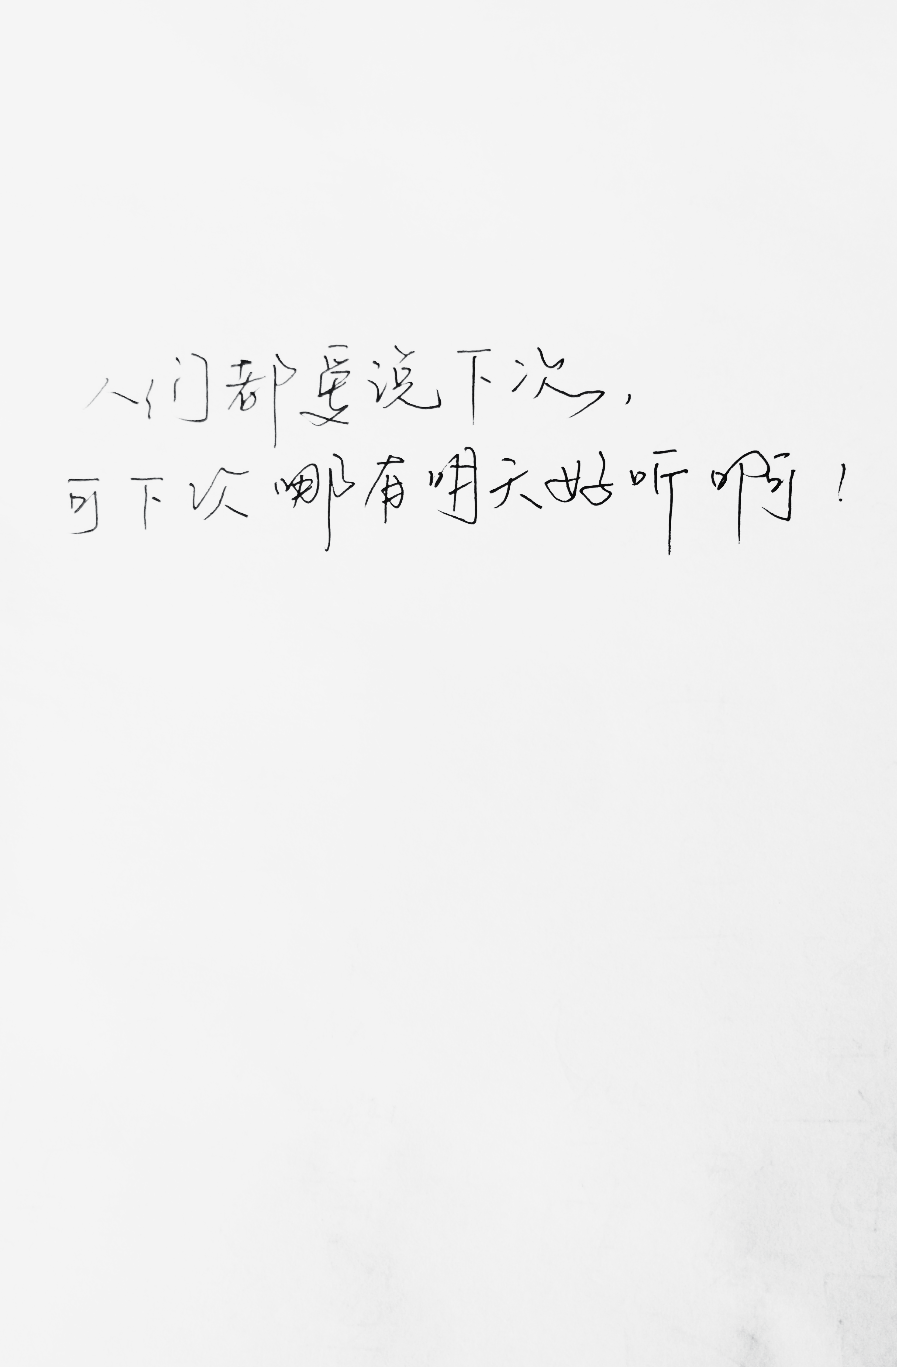 人们都要说下次，
可下次哪有明天好听啊！